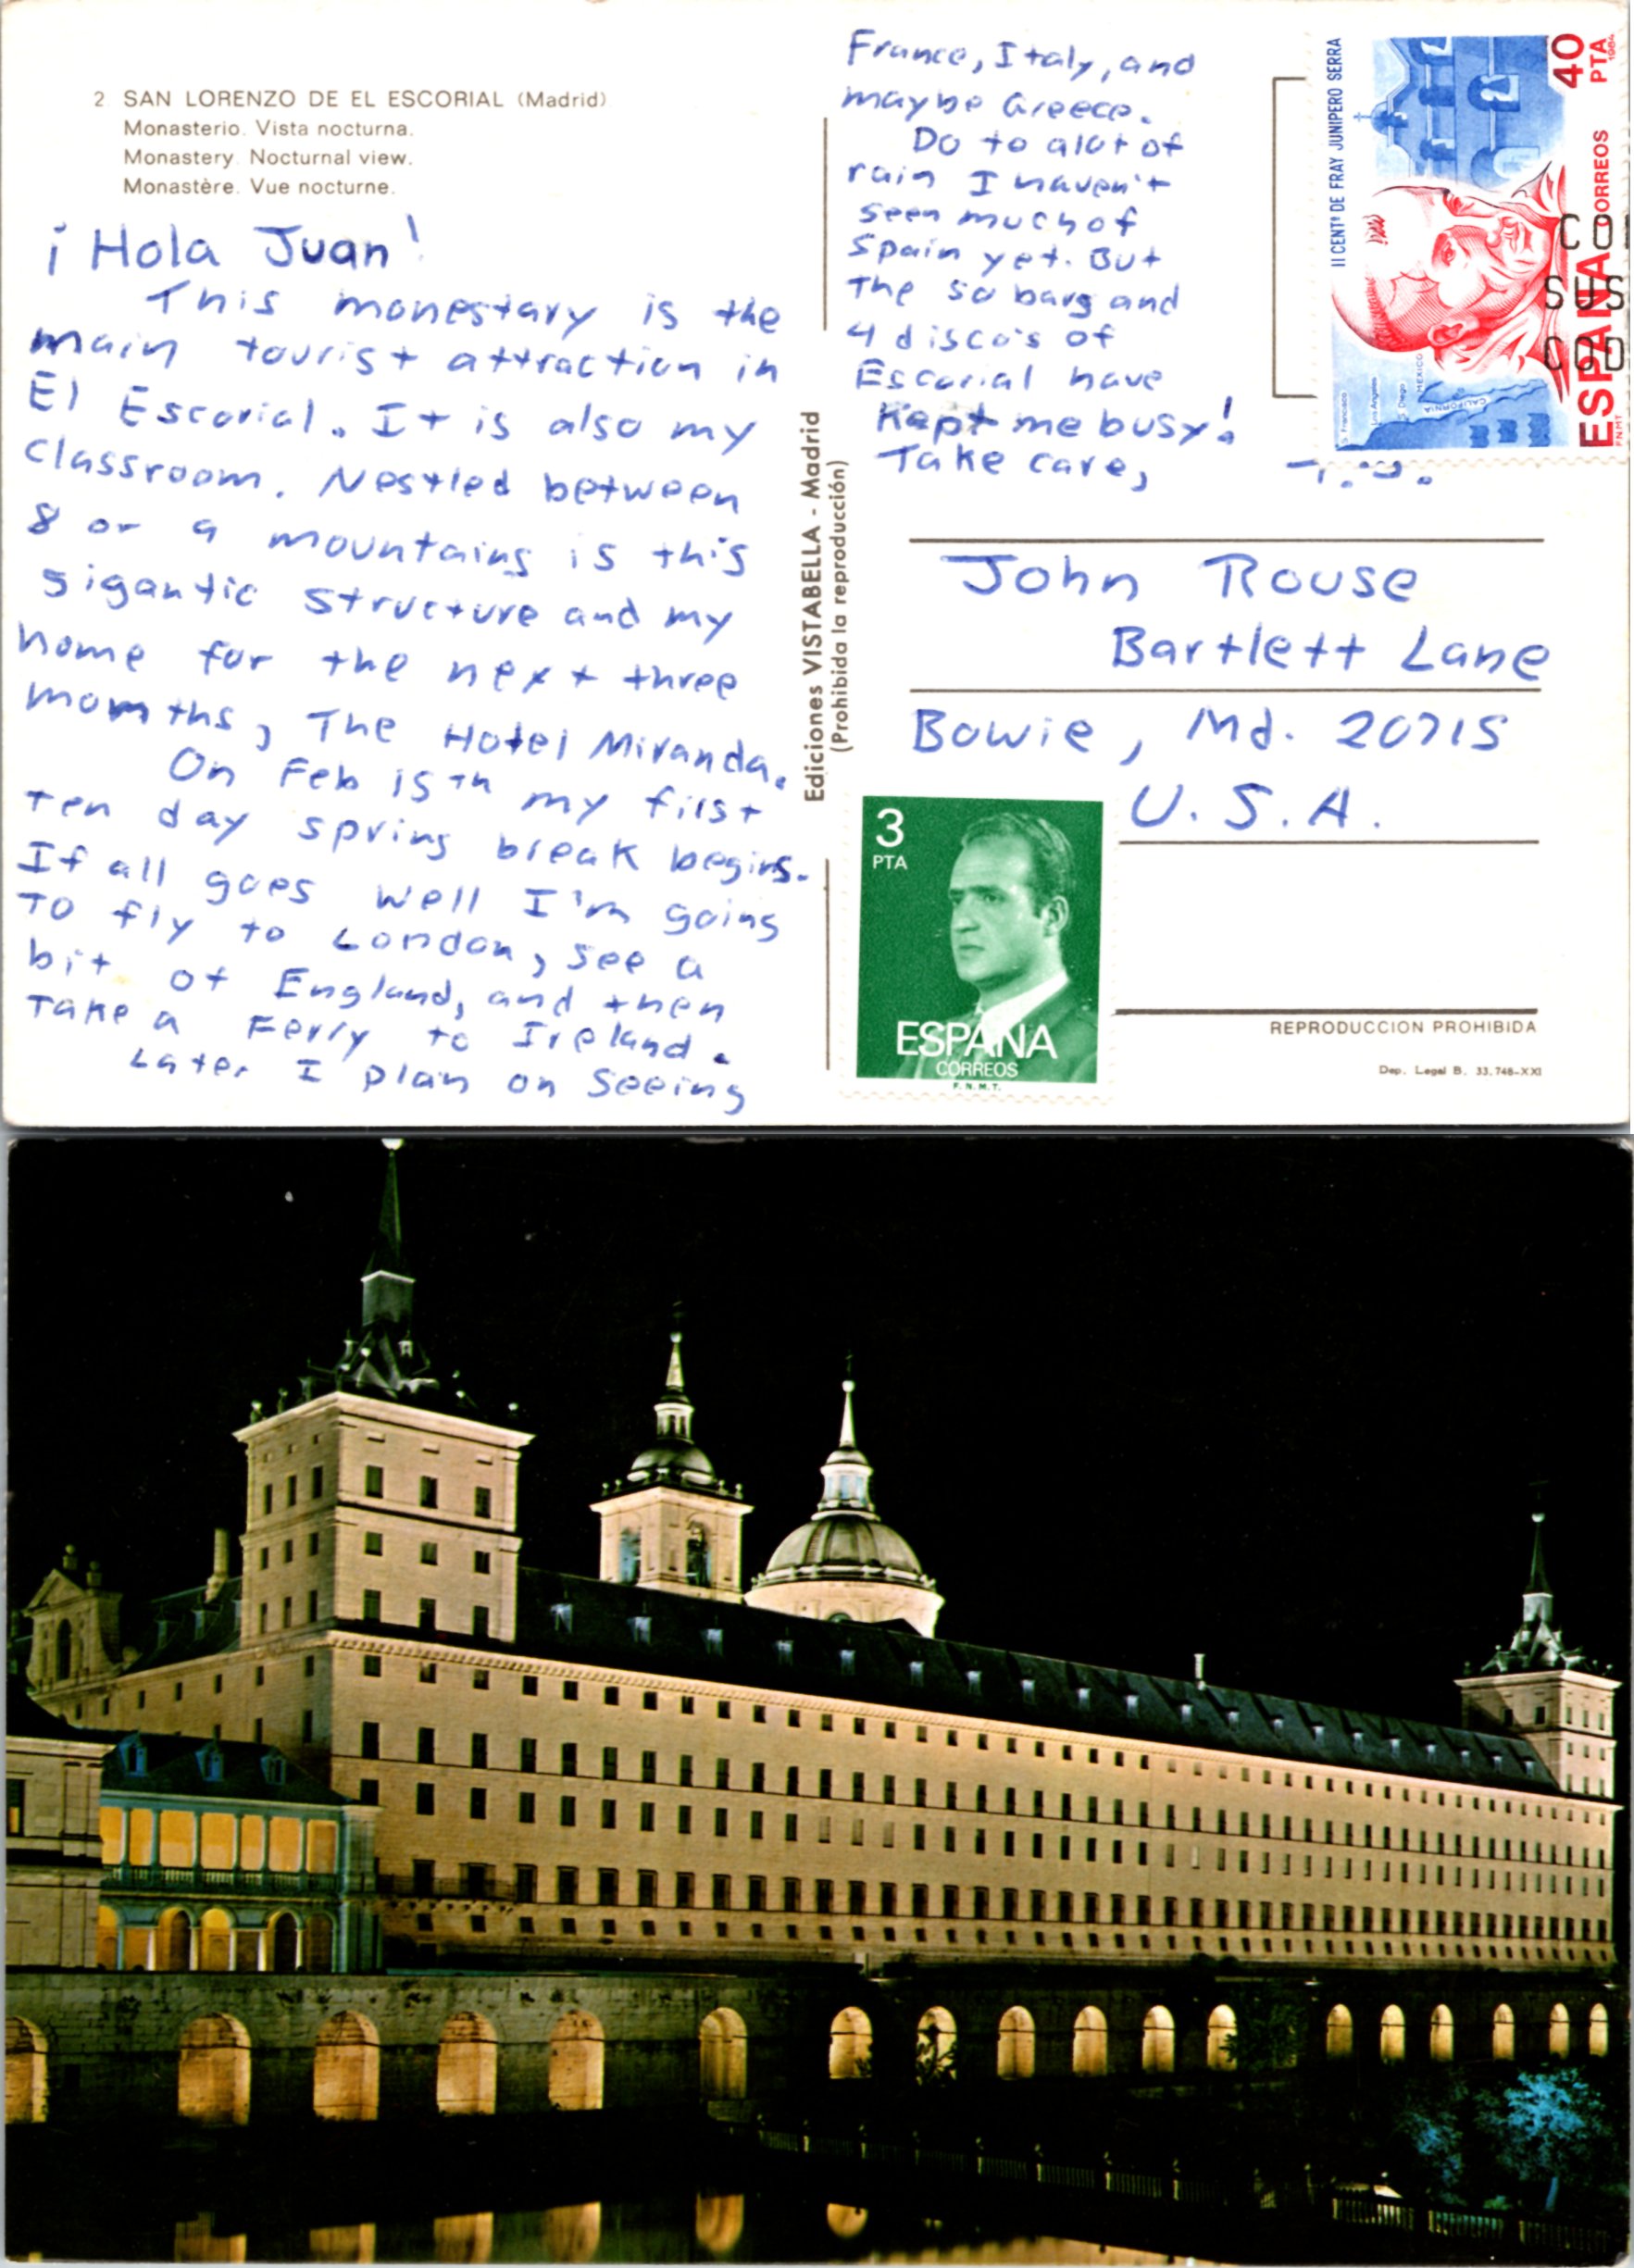 2 SAN LORENZO DE EL ESCORIAL (Madrid)
Monasterio. Vista nocturna.
Monastery. Nocturnal view.
Monastère. Vue nocturne.
¡Hola Juan!
This monestary is the
main tourist attraction in
El Escorial. It is also my
classroom. Nestled between
8 or 9 mountains is this
gigantic structure and my
home for the next three
momths, The Hotel Miranda.
On Feb 15th my first
ten day spring break begins.
If all goes well I'm going
To fly to London, see a
bit of England, and then
Take a Ferry to Ireland.
Later I plan on Seeing
France, Italy, and
maybe Greece.
Do to alot of
rain I haven't
seen much of
Spain yet. But
The 50 bars and
4 disco's of
Escorial have
Kept me busy!
Take care,
T.J.
Ediciones VISTABELLA - Madrid
(Prohibida la reproducción)
II CENTº DE FRAY JUNIPERO SERRA
40 PTA
1984
ESPAÑA CORREOS
F.N.M.T
S. Francisco
Los Angeles
S. Diego
MEXICO
CALIFORNIA
SUS
COD
John Rouse
Bartlett Lane
Bowie, Md. 20715
U.S.A.
3
PTA
ESPAÑA
CORREOS
F.N.M.T.
REPRODUCCION PROHIBIDA
Dep. Legal B. 33.748-XXI